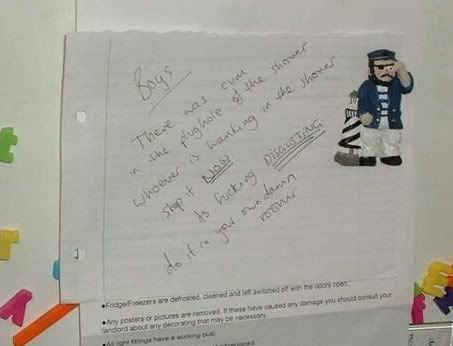 Boys
There was cum
in the plughole of the shower
whoever is wanking in the shower
stop it NOW
Is fucking DISGUSTING
do it in your own damn
rooms
•Fridge/Freezers are defrosted, cleaned and left switched off with the doors open.
•Any posters or pictures are removed. If these have caused any damage you should consult your
landlord about any decorating that may be necessary
•All light fittings have a working bulb.